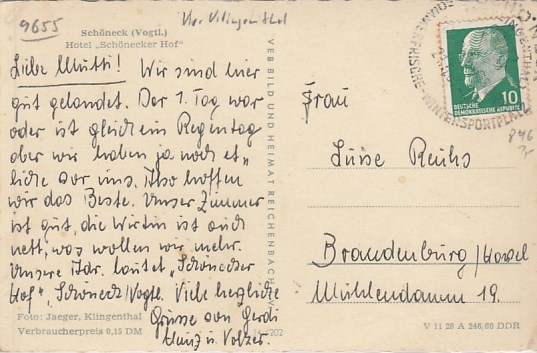 9655
Schöneck (Vogtl.)
Hotel „Schönecker Hof"
Liebe Mutti! Wir sind hier
gut gelandet. Der 1. Tag war
oder ist gleich ein Regentag
aber wir haben ja noch et"
liche vor uns. Also hoffen
wir das Beste. Unser Zimmer
ist gut, die Wirtin ist auch
nett, was wollen wir mehr.
Unsere Adr. lautet „Schönecker
Hof", Schöneck/Vogtl. Viele herzliche
Grüsse von Gerdi
Heinz u. Volker.
Foto: Jaeger, Klingenthal
Verbraucherpreis 0,15 DM
VEB BILD UND HEIMAT REICHENBACH
DEUTSCHE
DEMOKRATISCHE REPUBLIK
10
WINTERSPORTPLATZ
Frau
Luise Reuhs
Brandenburg/Havel
Mühlendamm 19.
V 11 28 A 246/60 DDR